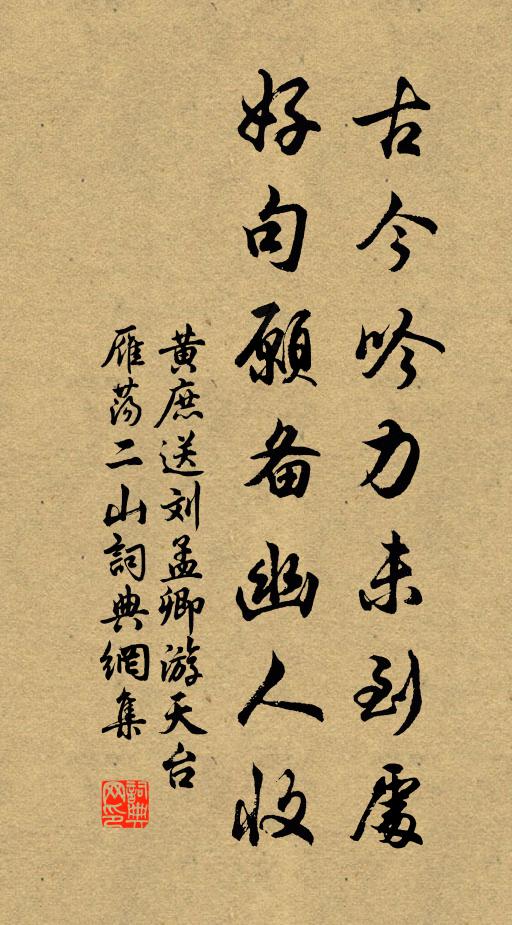 古今吟力未到處
好句願备幽人收
黄庶送刘孟卿游天台
雁荡二山詞典網集
詞典
网印